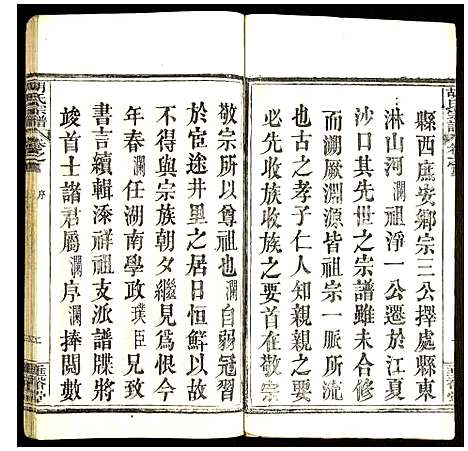 縣西庶安鄉宗三公擇處縣東
淋山河瀾祖淨一公遷於江夏
沙口其先世之宗譜雖未合修
而溯厥淵源皆祖宗一脈所流
也古之孝子仁人知親親之必
先收族收族之要首在敬宗
敬宗所以尊祖也瀾自弱冠習
於宦途井里之居日恒鮮以故
不得與宗族朝夕繼見爲恨今
年春瀾任湖南學政璞臣兄致
書言續輯漆祥祖支派譜牒將
竣首士諸君屬瀾序捧閱數
胡氏宗譜
卷之
序